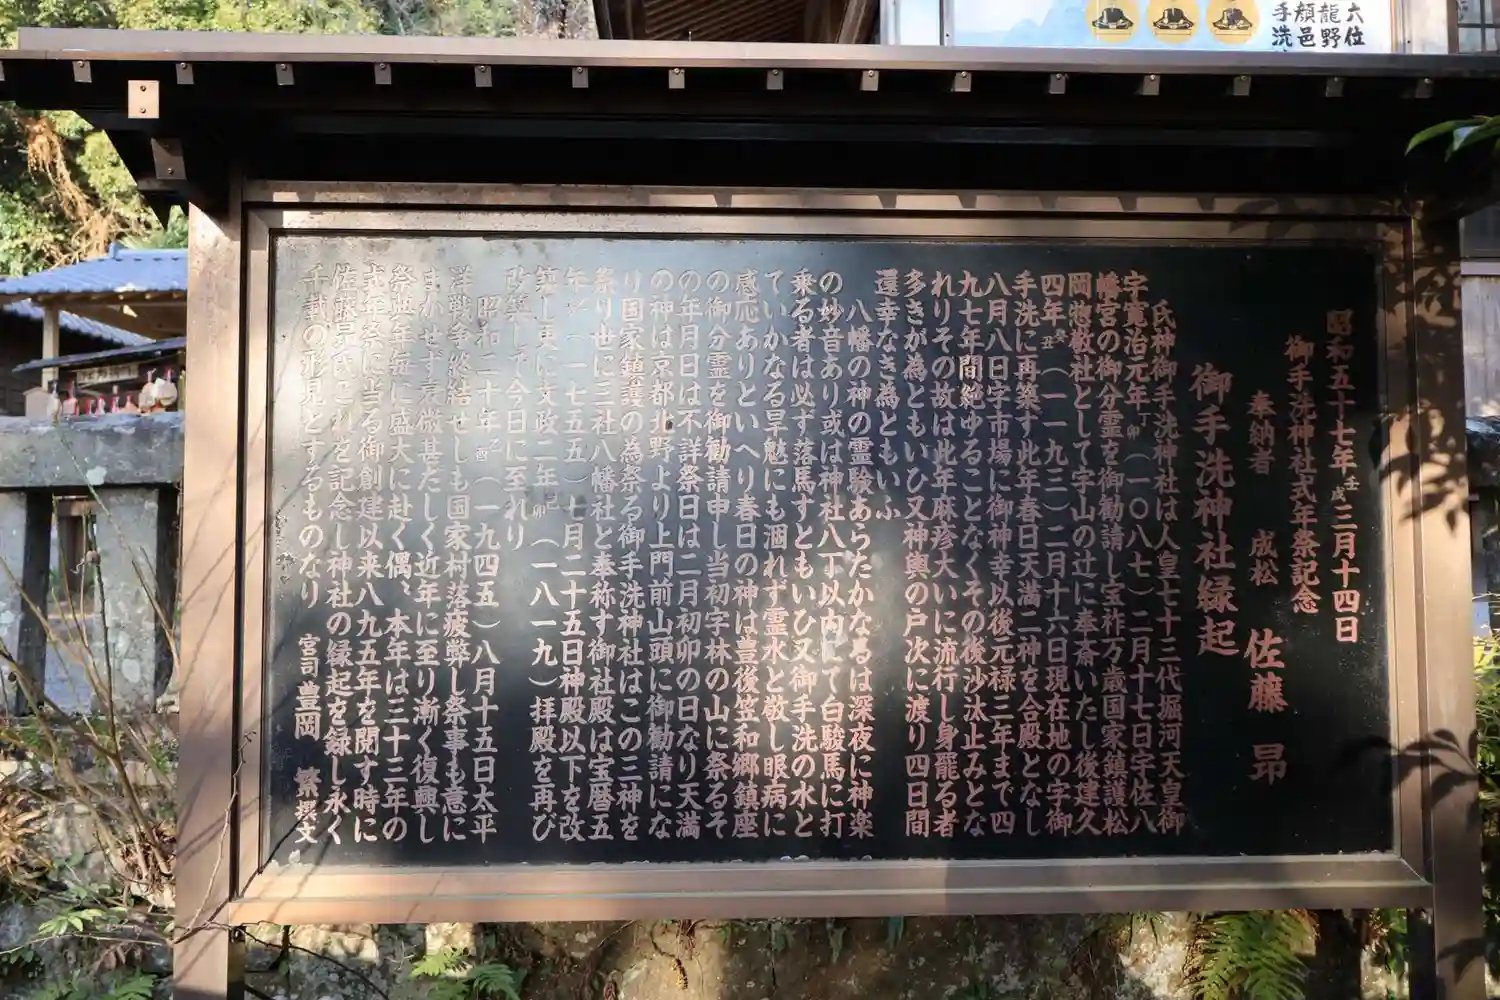 六位
龍野
顔邑
手洗
昭和五十七年壬戌三月十四日
御手洗神社式年祭記念
奉納者 成松 佐藤 昻
御手洗神社縁起
氏神御手洗神社は人皇七十三代堀河天皇御
宇寛治元年丁卯(一〇八七)二月十七日宇佐八
幡宮の御分霊を御勧請し宝祚万歳国家鎮護松
岡惣敷社として字山の辻に奉斎いたし後建久
四年癸丑(一一九三)二月十六日現在地の字御
手洗に再築す此年春日天満二神を合殿となし
八月八日字市場に御神幸以後元禄三年まで四
九七年間絶ゆることなくその後沙汰止みとな
れりその故は此年麻疹大いに流行し身罷る者
多きが為ともいひ又神輿の戸次に渡り四日間
還幸なき為ともいふ
八幡の神の霊験あらたかなるは深夜に神楽
の妙音あり或は神社八丁以内にて白駿馬に打
乗る者は必ず落馬すともいひ又御手洗の水と
ていかなる旱魃にも涸れず霊水と敬し眼病に
感応ありといへり春日の神は豊後笠和郷鎮座
の御分霊を御勧請申し当初字林の山に祭るそ
の年月日は不詳祭日は二月初卯の日なり天満
の神は京都北野より上門前山頭に御勧請にな
り国家鎮護の為祭る御手洗神社はこの三神を
祭り世に三社八幡社と奉称す御社殿は宝暦五
年(一七五五)七月二十五日神殿以下を改
築し更に文政二年己卯(一八一九)拝殿を再び
改築して今日に至れり
昭和二十年乙酉(一九四五)八月十五日太平
洋戦争終結せしも国家村落疲弊し祭事も意に
まかせず衰微甚だしく近年に至り漸く復興し
祭典年毎に盛大に赴く偶、本年は三十三年の
式年祭に当る御創建以来八九五年を閲す時に
佐藤昻氏これを記念し神社の縁起を録し永く
千載の形見とするものなり
宮司 豊岡 繁撰文